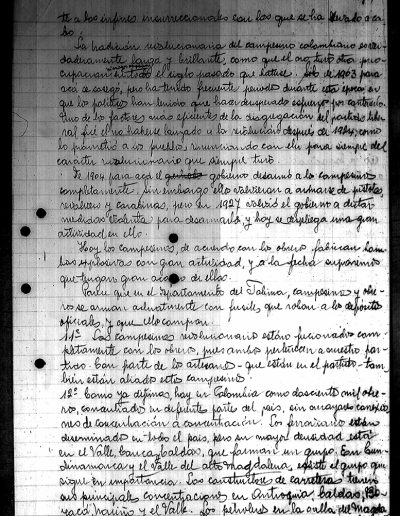 te a los infimos insurreccionales con los que se ha llevado a ca-
bo.
La tradición revolucionaria del campesino colombiano es ver-
daderamente larga y brillante, como que él no tuvo otra pre-
ocupación en todo el siglo pasado que batirse. Solo de 1903 para
acá se sosegó, pero ha tenido frecuente periodo durante esta época en
que los políticos han tenido que hacer desesperado esfuerzo por contenerlo.
Uno de los factores más eficientes de la disgregación del partido libe-
ral fué el no haberse lanzado a la revolución después de 1924, como
lo prometió a los pueblos, renunciando con ello para siempre del
carácter revolucionario que siempre tuvo.
De 1904 para acá el gobierno desarmó a los campesinos
completamente. Sin embargo ellos volvieron a armarse de pistolas
revolveres y carabinas, pero en 1927 volvió el gobierno a dictar
medidas violentas para desarmarlos y hoy se despliega una gran
actividad en ello.
Hoy los campesinos, de acuerdo con los obreros fabrican bom-
bas explosivas con gran actividad, y a la fecha suponemos
que tengan gran acopio de ellas.
Parece que en el Departamento del Tolima, campesinos y obre-
ros se arman actualmente con fusiles que roban a los depósitos
oficiales, y que ellos compran.
11º Los campesinos revolucionarios están fusionados com-
pletamente con los obreros, pues ambos pertenecen a nuestro par-
tido. Gran parte de los artesanos - que están en el partido - tam-
bién están aliados a los campesinos.
12º Como ya dijimos, hay en Colombia como doscientos mil obre-
ros, concentrados en diferentes partes del país, sin arraigadas conexio-
nes de concentración a concentración. Los ferroviarios están
diseminados en todo el país, pero en mayor densidad están
en el Valle, Cauca, Caldas, que forman un grupo. En Cun-
dinamarca y el Valle del alto Magdalena, existe el grupo que
sigue en importancia. Los constructores de carreteras tienen
sus principales concentraciones en Antioquia, Caldas, Bo-
yacá, Nariño y el Valle. Los petroleros en la orilla del Magda